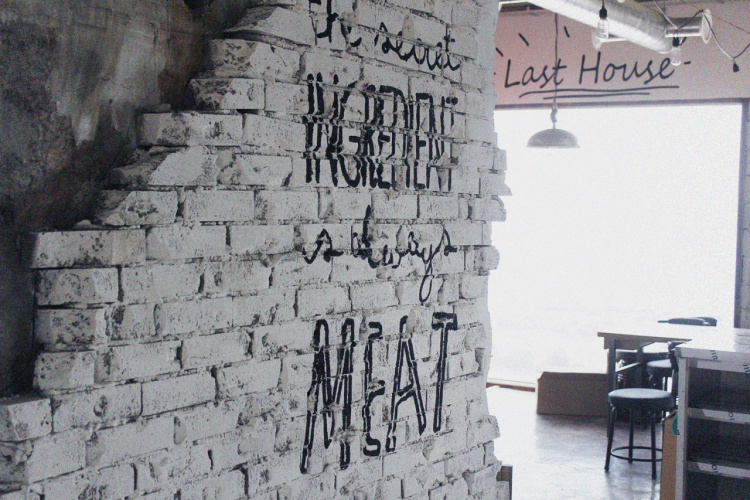 the secret
INGREDIENT
is always
MEAT
Last House